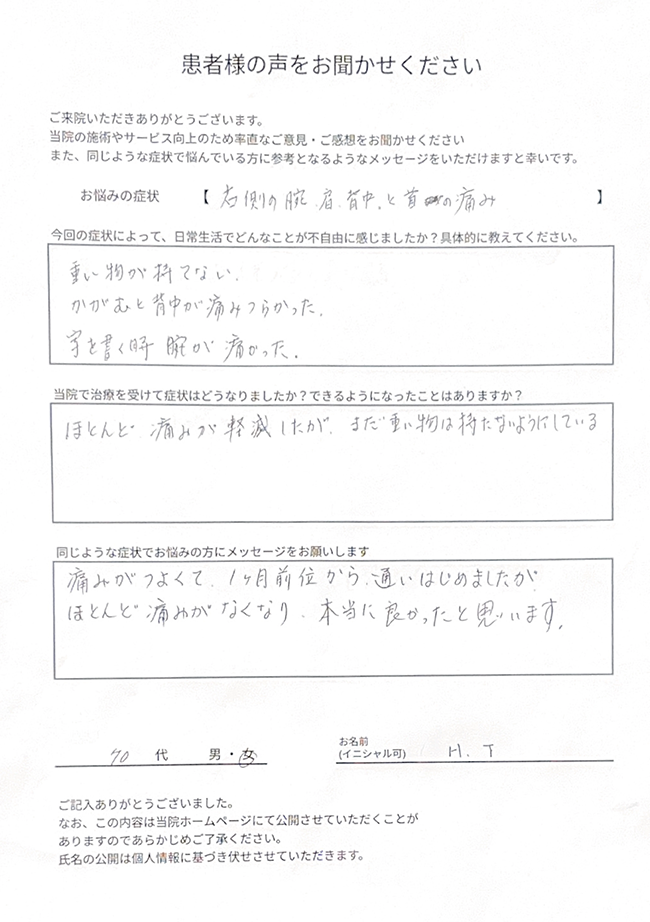 患者様の声をお聞かせください
ご来院いただきありがとうございます。
当院の施術やサービス向上のため率直なご意見・ご感想をお聞かせください
また、同じような症状で悩んでいる方に参考となるようなメッセージをいただけますと幸いです。
お悩みの症状 【 右側の腕、肩、背中、と首の痛み 】
今回の症状によって、日常生活でどんなことが不自由に感じましたか?具体的に教えてください。
重い物が持てない、
かがむと背中が痛みつらかった。
字を書く時 腕が 痛かった。
当院で治療を受けて症状はどうなりましたか?できるようになったことはありますか?
ほとんど、痛みが軽減したが、まだ重い物は持たないようにしている
同じような症状でお悩みの方にメッセージをお願いします
痛みがつよくて、1ヶ月前位から、通いはじめましたが
ほとんど痛みがなくなり、本当に良かったと思います。
70 代 男・女 お名前 (イニシャル可) H. T
ご記入ありがとうございました。
なお、この内容は当院ホームページにて公開させていただくことが
ありますのであらかじめご了承ください。
氏名の公開は個人情報に基づき伏せさせていただきます。